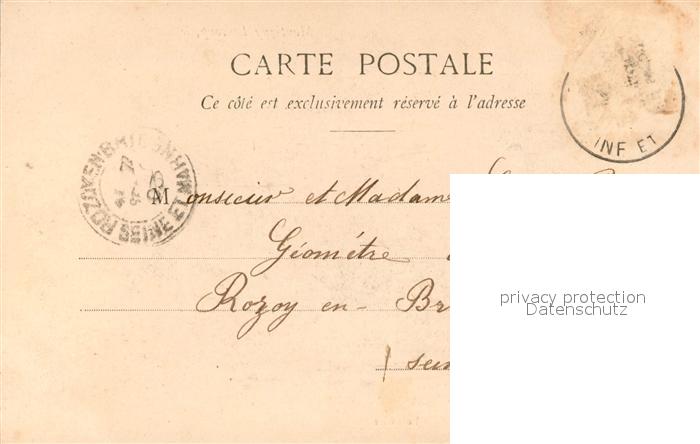 CARTE POSTALE
Ce côté est exclusivement réservé à l'adresse
INE ET
ROZOY EN BRIE
SEINE ET MARNE
Monsieur et Madame
Géomètre
Rozoy en- Br
privacy protection
Datenschutz